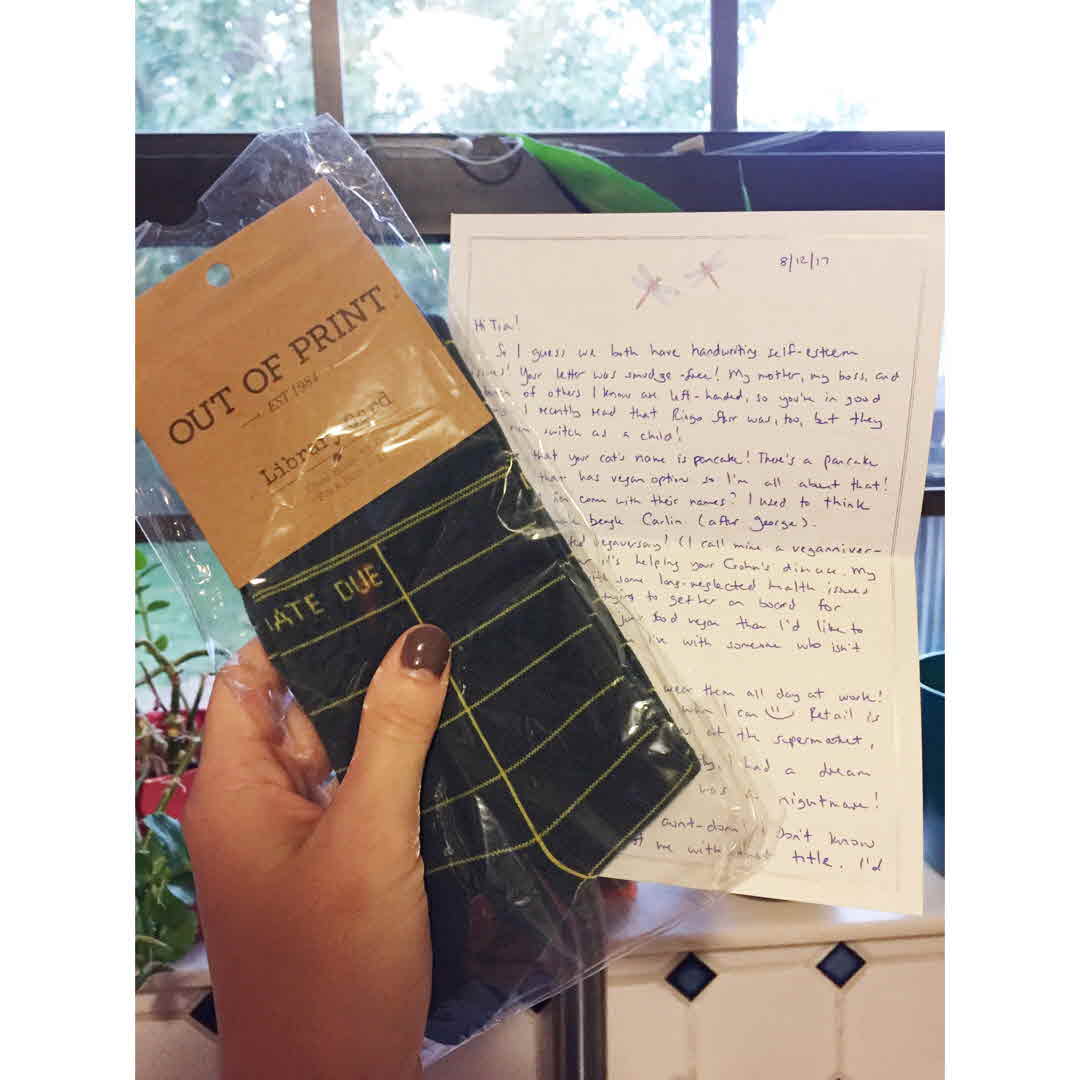 OUT OF PRINT
EST 1984
Library Card
DATE DUE
8/12/17
So I guess we both have handwriting self-esteem
Your letter was smudge-free! My mother, my boss, and
of others I know are left-handed, so you're in good
I recently read that Ringo Starr was, too, but they
switch as a child!
that your cat's name is pancake! There's a pancake
that has vegan option so I'm all about that!
come with their names? I used to think
beagle Carlin (after George).
veganversary! (I call mine a veganniver-
it's helping your Crohn's disease. My
some long-neglected health issues
trying to get her on board for
food vegan than I'd like to
with someone who isn't
wear them all day at work!
when I can Retail is
at the supermarket,
I had a dream
was a nightmare!
aunt-dom! I don't know
me with that title. I'd